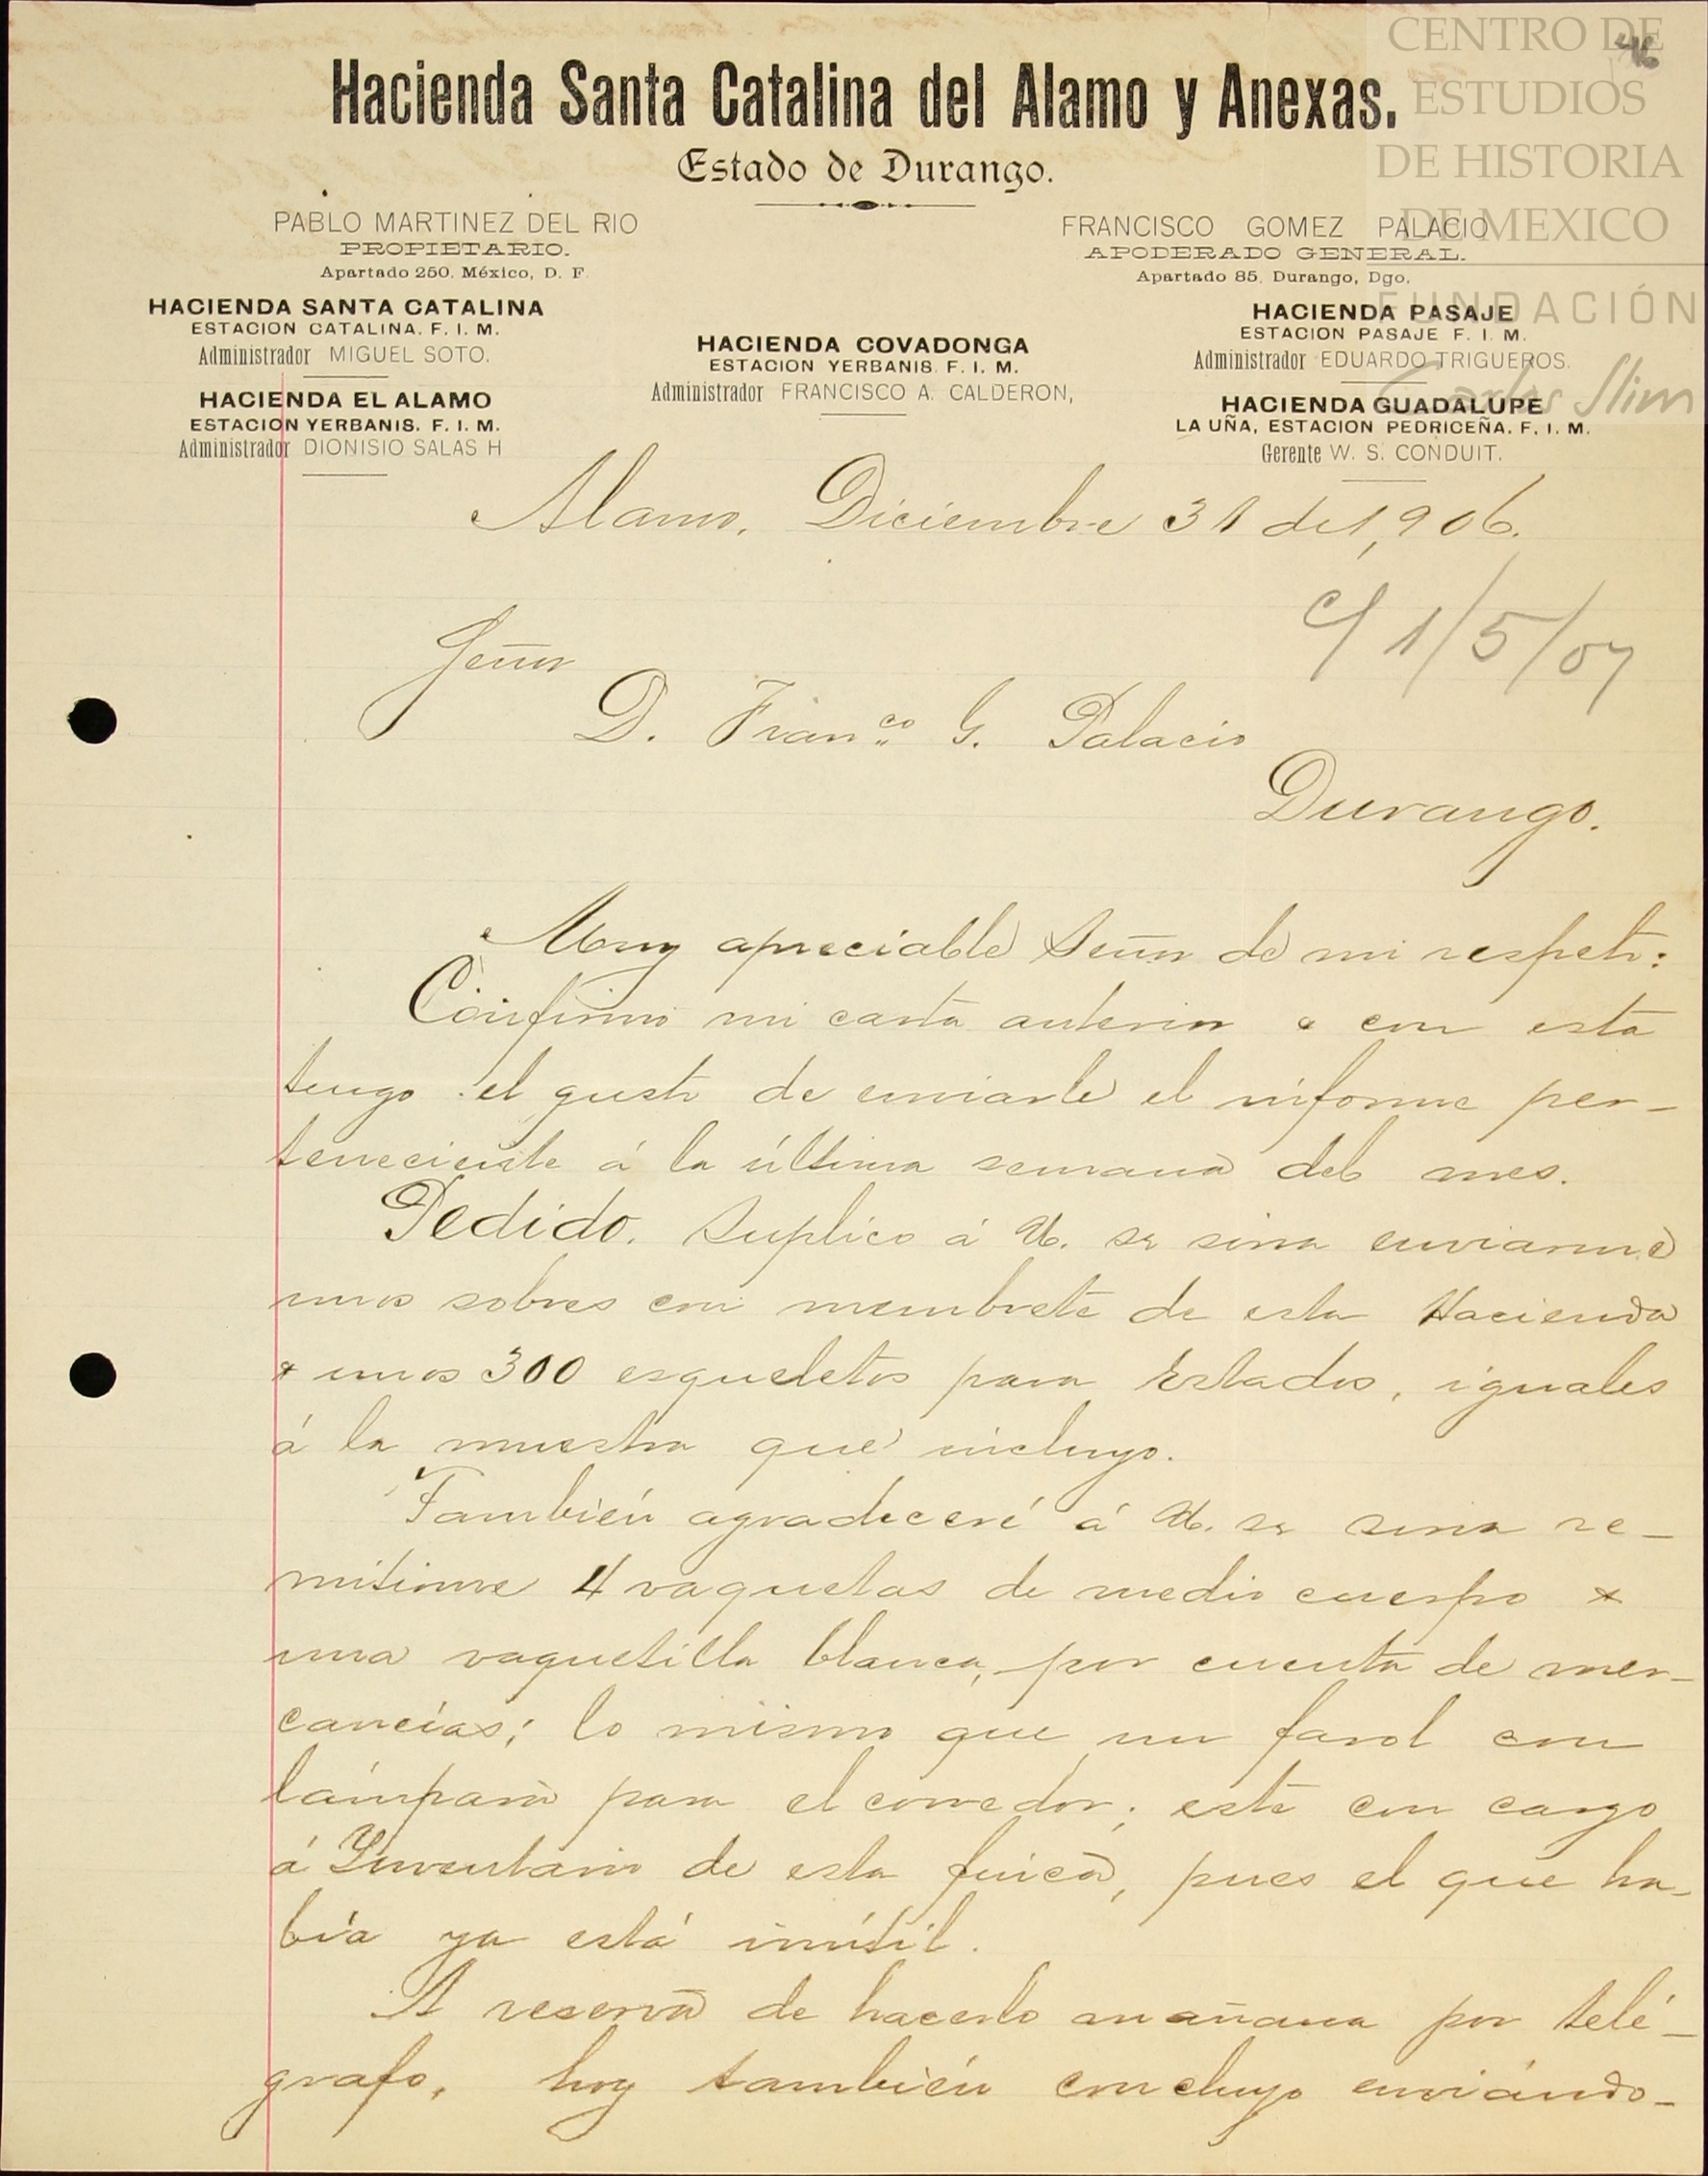 CENTRO DE
ESTUDIOS
DE HISTORIA
DE MEXICO
FUNDACIÓN
Carlos Slim
46
Hacienda Santa Catalina del Alamo y Anexas.
Estado de Durango.
PABLO MARTINEZ DEL RIO
PROPIETARIO.
Apartado 250. México, D. F.
FRANCISCO GOMEZ PALACIO
APODERADO GENERAL.
Apartado 85, Durango, Dgo.
HACIENDA SANTA CATALINA
ESTACION CATALINA. F. I. M.
Administrador MIGUEL SOTO.
HACIENDA EL ALAMO
ESTACION YERBANIS. F. I. M.
Administrador DIONISIO SALAS H
HACIENDA COVADONGA
ESTACION YERBANIS. F. I. M.
Administrador FRANCISCO A. CALDERON,
HACIENDA PASAJE
ESTACION PASAJE F. I. M.
Administrador EDUARDO TRIGUEROS.
HACIENDA GUADALUPE
LA UÑA, ESTACION PEDRICEÑA. F. I. M.
Gerente W. S. CONDUIT.
Alamo, Diciembre 31 de 1,906.
c/ 1/5/07
Señor
D. Franco G. Palacio
Durango.
Muy apreciable Señor de mi respeto:
Confirmo mi carta anterior & con esta
tengo el gusto de enviarle el informe per-
teneciente á la última semana del mes.
Pedido. Suplico á U. se sirva enviarme
unos sobres con membrete de esta Hacienda
& unos 300 esqueletos para Estados, iguales
á la muestra que incluyo.
También agradeceré á U. se sirva re-
mitirme 4 vaquetas de medio cuerpo &
una vaquetilla blanca, por cuenta de mer-
cancías; lo mismo que un farol con
lámpara para el corredor; este con cargo
á Inventario de esta finca, pues el que ha-
bía ya está inútil.
A reserva de hacerlo mañana por telé-
grafo, hoy también concluyo enviándo-